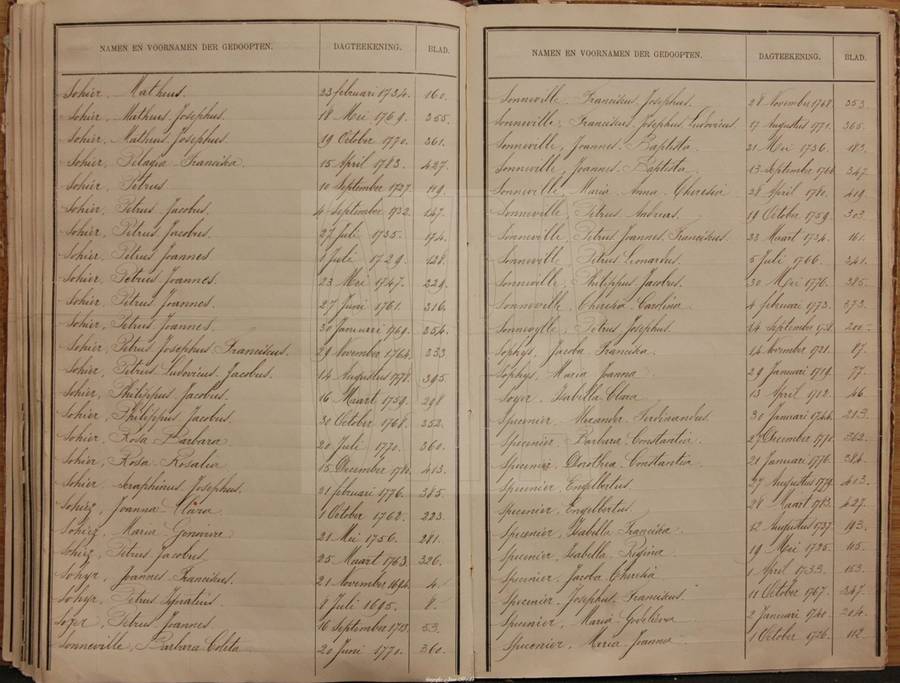 NAMEN EN VOORNAMEN DER GEDOOPTEN. DAGTEEKENING. BLAD.
Sohier, Matheus. 23 februari 1734. 160.
Sohier, Matheus Josephus. 18 Mei 1769. 355.
Sohier, Matheus Josephus. 19 October 1770. 361.
Sohier, Pelagia Francisca 15 April 1783. 427.
Sohier, Petrus 10 September 1727. 119.
Sohier, Petrus Jacobus. 4 September 1732. 147.
Sohier, Petrus Jacobus. 27 Juli 1735. 174.
Sohier, Petrus Joannes 8 Juli 1729. 128.
Sohier, Petrus Joannes. 23 Mei 1747. 229.
Sohier, Petrus Joannes. 27 Juni 1761. 316.
Sohier, Petrus Joannes. 30 Januari 1769. 354.
Sohier, Petrus Josephus Franciscus. 29 November 1764. 333.
Sohier, Petrus Ludovicus Jacobus. 14 Augustus 1778. 395.
Sohier, Philippus Jacobus. 16 Maart 1759. 298
Sohier, Philippus Jacobus. 30 October 1768. 352.
Sohier, Rosa Barbara 20 Juli 1770. 360.
Sohier, Rosa Rosalia 15 December 1780. 413.
Sohier, Seraphinus Josephus. 21 februari 1776. 385.
Sohiez, Joanna Clara. 1 October 1762. 323.
Sohiez, Maria 21 Mei 1756. 281.
Sohiez, Petrus Jacobus 25 Maart 1763. 326.
Sohyr, Joannes Franciscus. 21 November 1694. 4.
Sohyr, Petrus Ignatius. 8 Juli 1695. 8.
Petrus Joannes. 16 September 1713. 53.
Sonneville, Barbara Coleta 20 Juni 1770. 360.
NAMEN EN VOORNAMEN DER GEDOOPTEN. DAGTEEKENING. BLAD.
Sonneville, Franciscus Josephus. 28 November 1768. 353.
Sonneville, Franciscus Josephus Ludovicus. 17 Augustus 1771. 365.
Sonneville, Joannes Baptista. 21 Mei 1736. 183.
Sonneville, Joannes Baptista. 13 September 347.
Sonneville, Maria Anna Theresia 28 April 1782. 419.
Sonneville, Petrus Andreas. 19 October 1759. 303.
Sonneville, Petrus Joannes Franciscus. 23 Maart 1734. 161.
Sonneville, Petrus Leonardus. 5 Juli 241.
Sonneville, Philippus Jacobus. 30 Mei 1776. 385.
Sonneville, Theresia Carolina. 4 februari 1773. 373.
Petrus Josephus. 14 September
Sophys, Jacoba Francisca. 14 November 1721. 87.
Sophys, Maria Joanna. 29 Januari 1719. 77.
Isabella Clara. 13 April 1712. 46.
Specenier, Alexander Ferdinandus. 30 Januari
Specenier, Barbara Constantia. 27 December 1770. 362.
Specenier, Dorothea Constantia. 21 Januari 1776. 384.
Specenier, Engelbertus. 27 Augustus 413.
Specenier, Engelbertus. 28 Maart 1783. 427.
Specenier, Isabella Francisca. 12 Augustus 1737. 193.
Specenier, Isabella Regina. 19 Mei 1725. 105.
Specenier, Jacoba Theresia. 1 April 1733. 153.
Specenier, Josephus Franciscus. 11 October 1767. 347.
Specenier, Maria Godelieva. 2 Januari 1740. 204.
Specenier, Maria Joanna. 1 October 1726. 112.